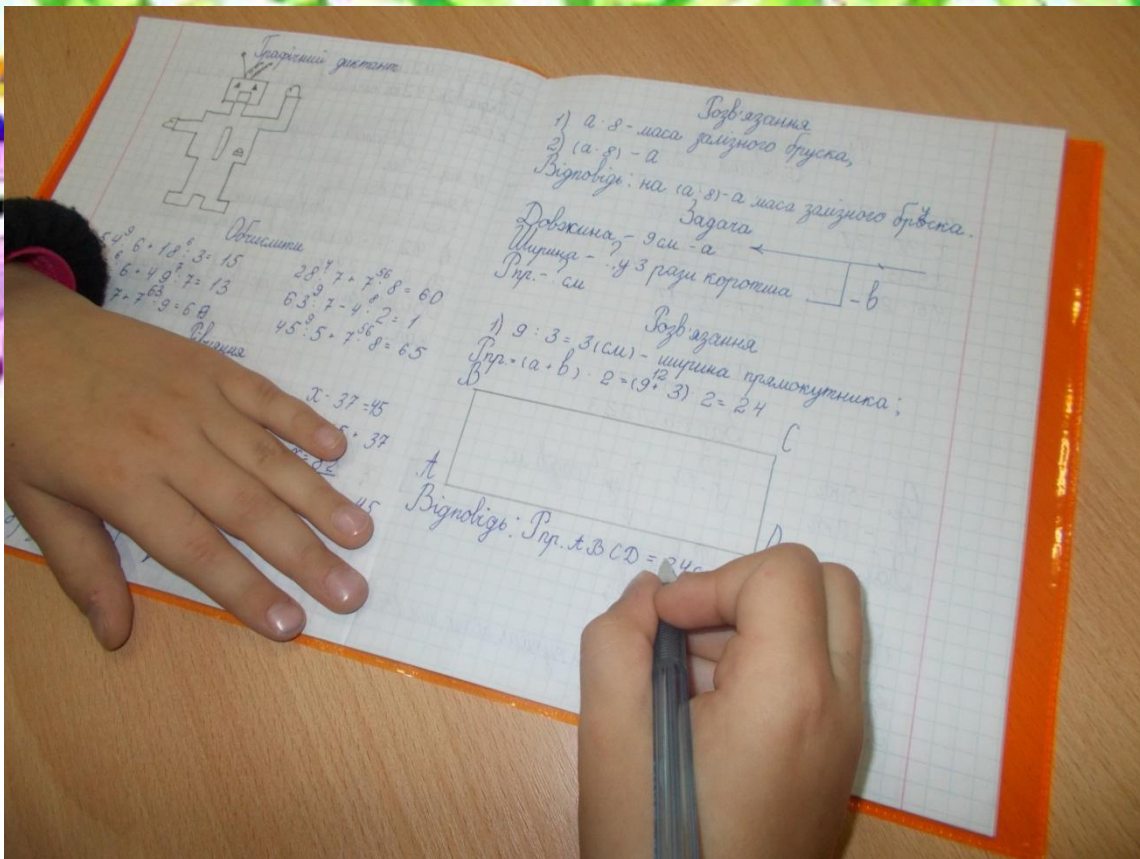 Графічний диктант
Обчислити
54 : 6 + 18 : 3 = 15
9 6
6 + 49 : 7 = 13
7
7 + 7 · 9 = 6
63
28 : 7 + 7 · 8 = 60
4 56
63 : 7 - 4 · 2 = 1
9 8
45 : 5 + 7 · 8 = 65
9 56
Рівняння
x - 37 = 45
+ 37
x = 82
45
Розв'язання
1) a · 8 - маса залізного бруска,
2) (a · 8) - a
Відповідь: на (a · 8) - a маса залізного бруска.
Задача
Довжина - 9 см - a
Ширина - ?, у 3 рази коротша - b
Pпр. - ? см
Розв'язання
1) 9 : 3 = 3 (см) - ширина прямокутника;
Pпр. = (a + b) · 2 = (9 + 3) · 2 = 24
12
B
C
A
D
Відповідь: Pпр. ABCD = 24